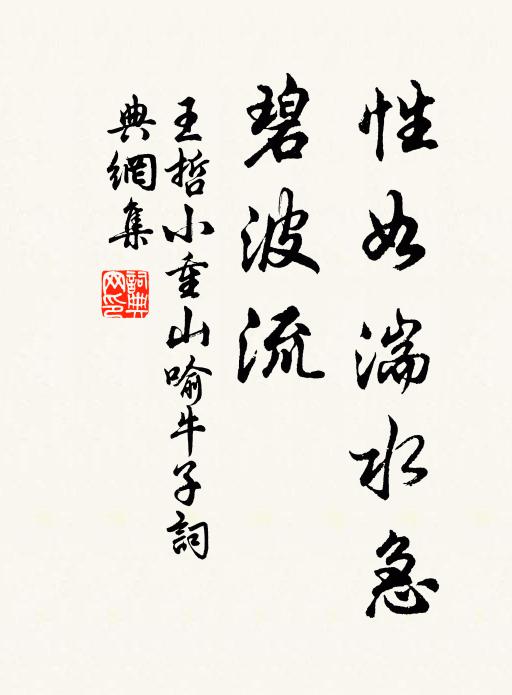 性如湍水急
碧波流
王哲小重山喻牛子詞
典網集
詞典網印